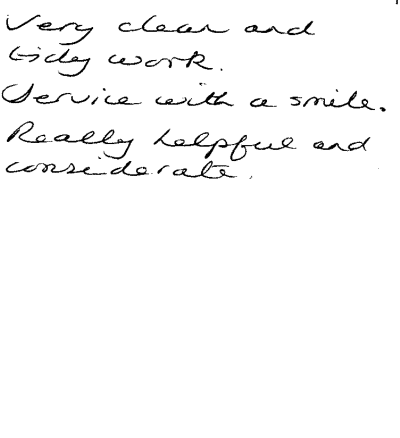 Very clean and
tidy work.
Service with a smile.
Really helpful and
considerate.